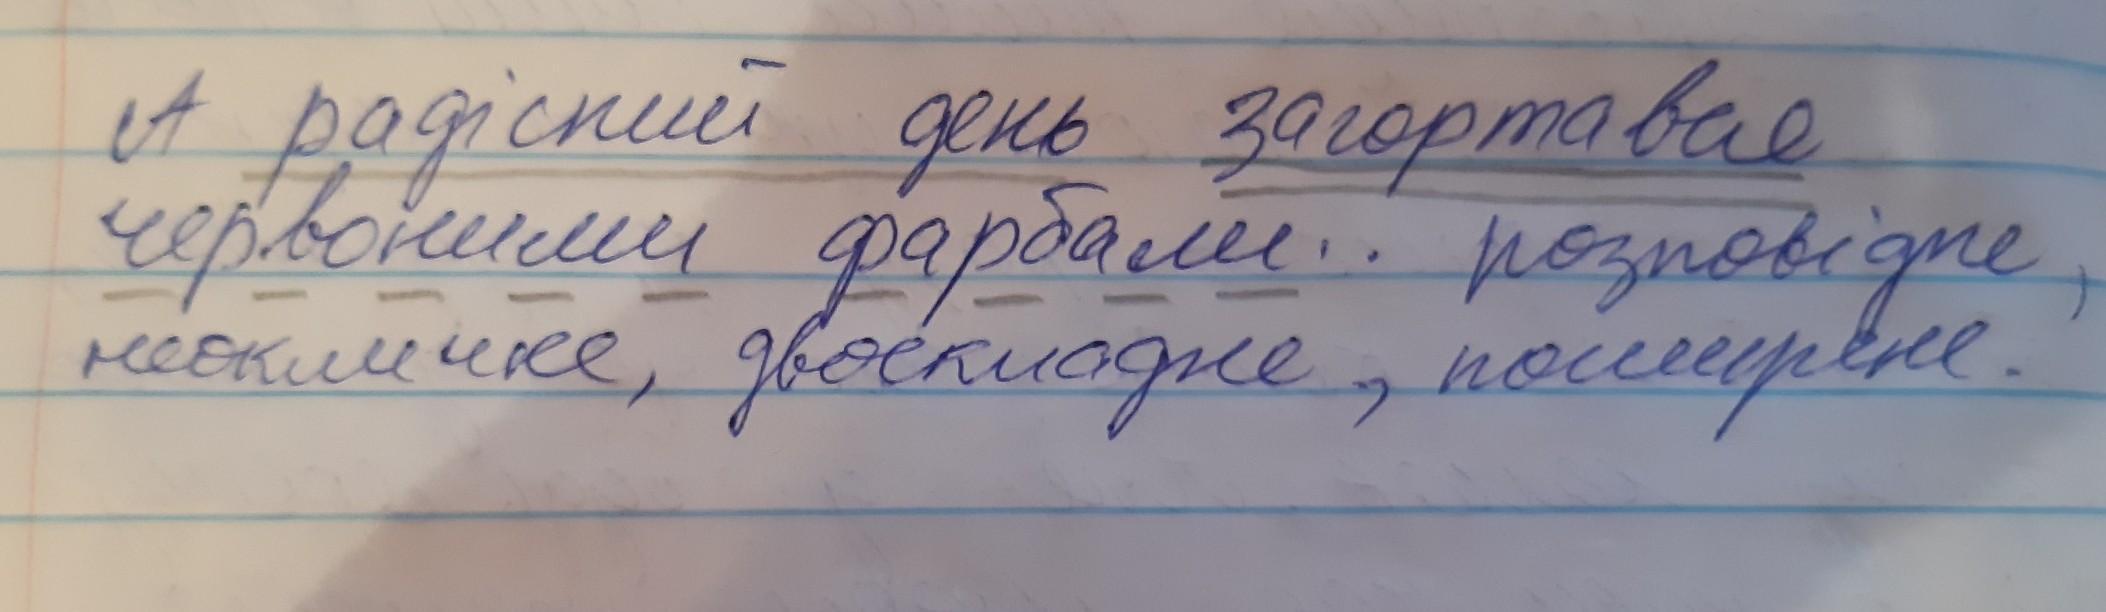 А радісний день загортавсе
червоними фарбами... розповідне,
неокличне, двоскладне, поширене.